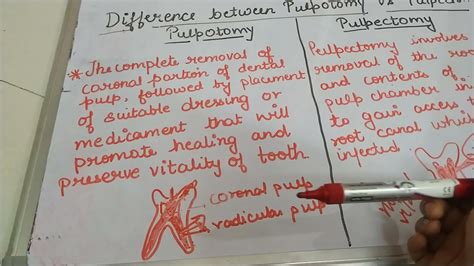 Difference between Pulpotomy vs Pulpectomy
Pulpotomy
* The complete removal of
coronal portion of dental
pulp, followed by placement
of suitable dressing or
medicament that will
promote healing and
preserve vitality of tooth
coronal pulp
radicular pulp
Pulpectomy
Pulpectomy involves
removal of the roo
and contents of
pulp chamber in
to gain access
root canal whi
infected.